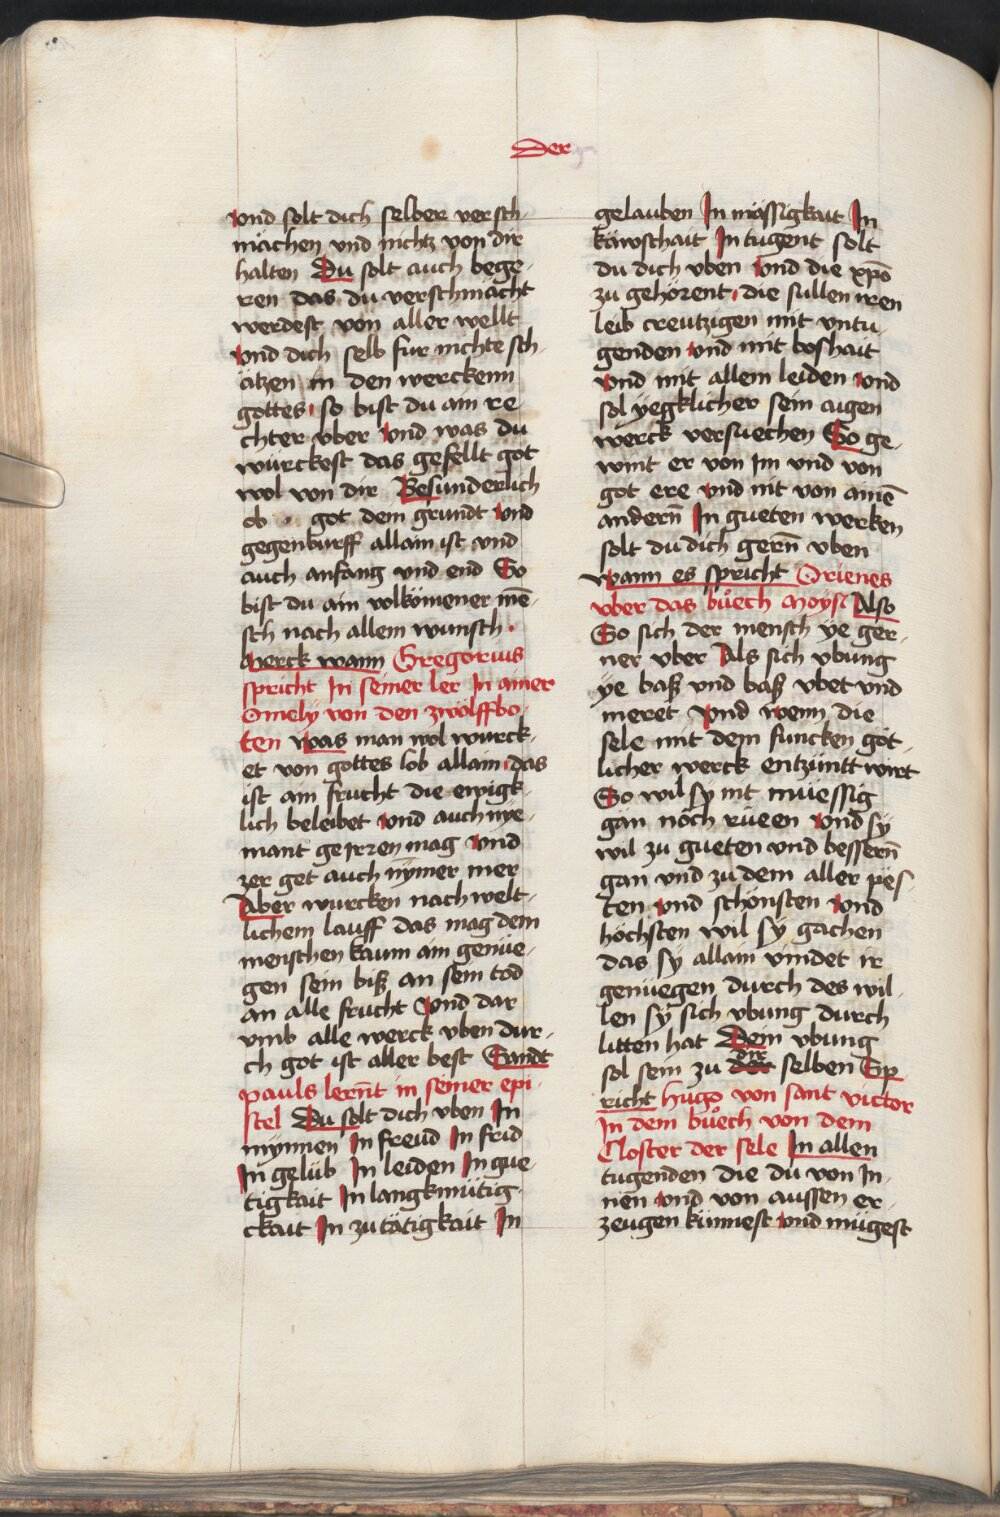 Der
vnd solt dich selber versch-
mächen vnd nichtz von dir
halten Du solt auch bege-
ren das du verschmächt
werdest von aller wellt
vnd dich selb fur nichte sch-
ätzen in den werckenn
gottes so bist du ain re-
chter vber vnd was du
würckest das gefellt got
wol von dir Besunderlich
ob got dem grundt vnd
gegenburff allain ist vnd
auch anfang vnd end So
bist du ain volkömener mē-
sch nach allem wunsch.
Merck wann Gregorius
spricht In seiner ler In ainer
Omely von den zwölffbo-
ten was man wol wurck-
et von gottes lob allain das
ist ain frucht die ewigk-
lich beleibet vnd auch nye-
mant geirren mag vnd
zer get auch nymer mer
Aber wurcken nach welt-
lichem lauff das mag dem
menschen kaum ain genüe-
gen sein biß an sein tod
an alle frucht Vnd dar
vmb alle werck vben dur-
ch got ist aller best Sandt
pauls lernt in seiner epi-
stel Du solt dich vben In
mynnen In freud In frid
In gelüb In leiden In gue-
tigkait In langkmütig-
ckait In zu tätigkait In
gelauben In mässigkait In
käwschait In tugent solt
du dich vben Vnd die xpō
zu gehörent die sullen iren
leib creutzigen mit vntu-
genden vnd mit boshait
vnd mit allem leiden vnd
sol yegklicher sein aigen
werck versuechen So ge-
wint er von Im vnd von
got ere vnd nit von ainē
andern̄ In gueten werken
solt du dich gern̄ vben
wann es spricht Orienes
vber das bůech Moysi Also
So sich der mensch ye ger-
ner vber Als sich vbung
ye baß vnd baß vbet vnd
meret vnd wenn die
sele mit dem funcken göt-
licher werck entzüntt wirt
So wil sy nit müessig
gän noch rüeen vnd sy
wil zu gueten vnd bessern̄
gan vnd zu dem aller pes-
ten vnd schönsten vnd
höchsten wil sy gachen
das sy allain vindet ir
genüegen durch des wil-
len sy sich vbung durch
litten hat Dein vbung
sol sein zu dir selben Sp-
richt Hugo von sant victor
In dem bůech von dem
Closter der sele In allen
tugenden die du von In-
nen vnd von aussen er-
zeugen künnest vnd mügest